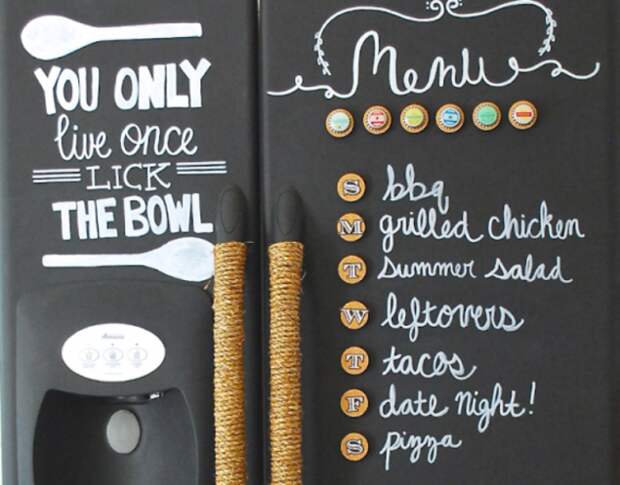 YOU ONLY
live once
LICK
THE BOWL
Menu
S bbq
M grilled chicken
T summer salad
W leftovers
T tacos
F date night!
S pizza